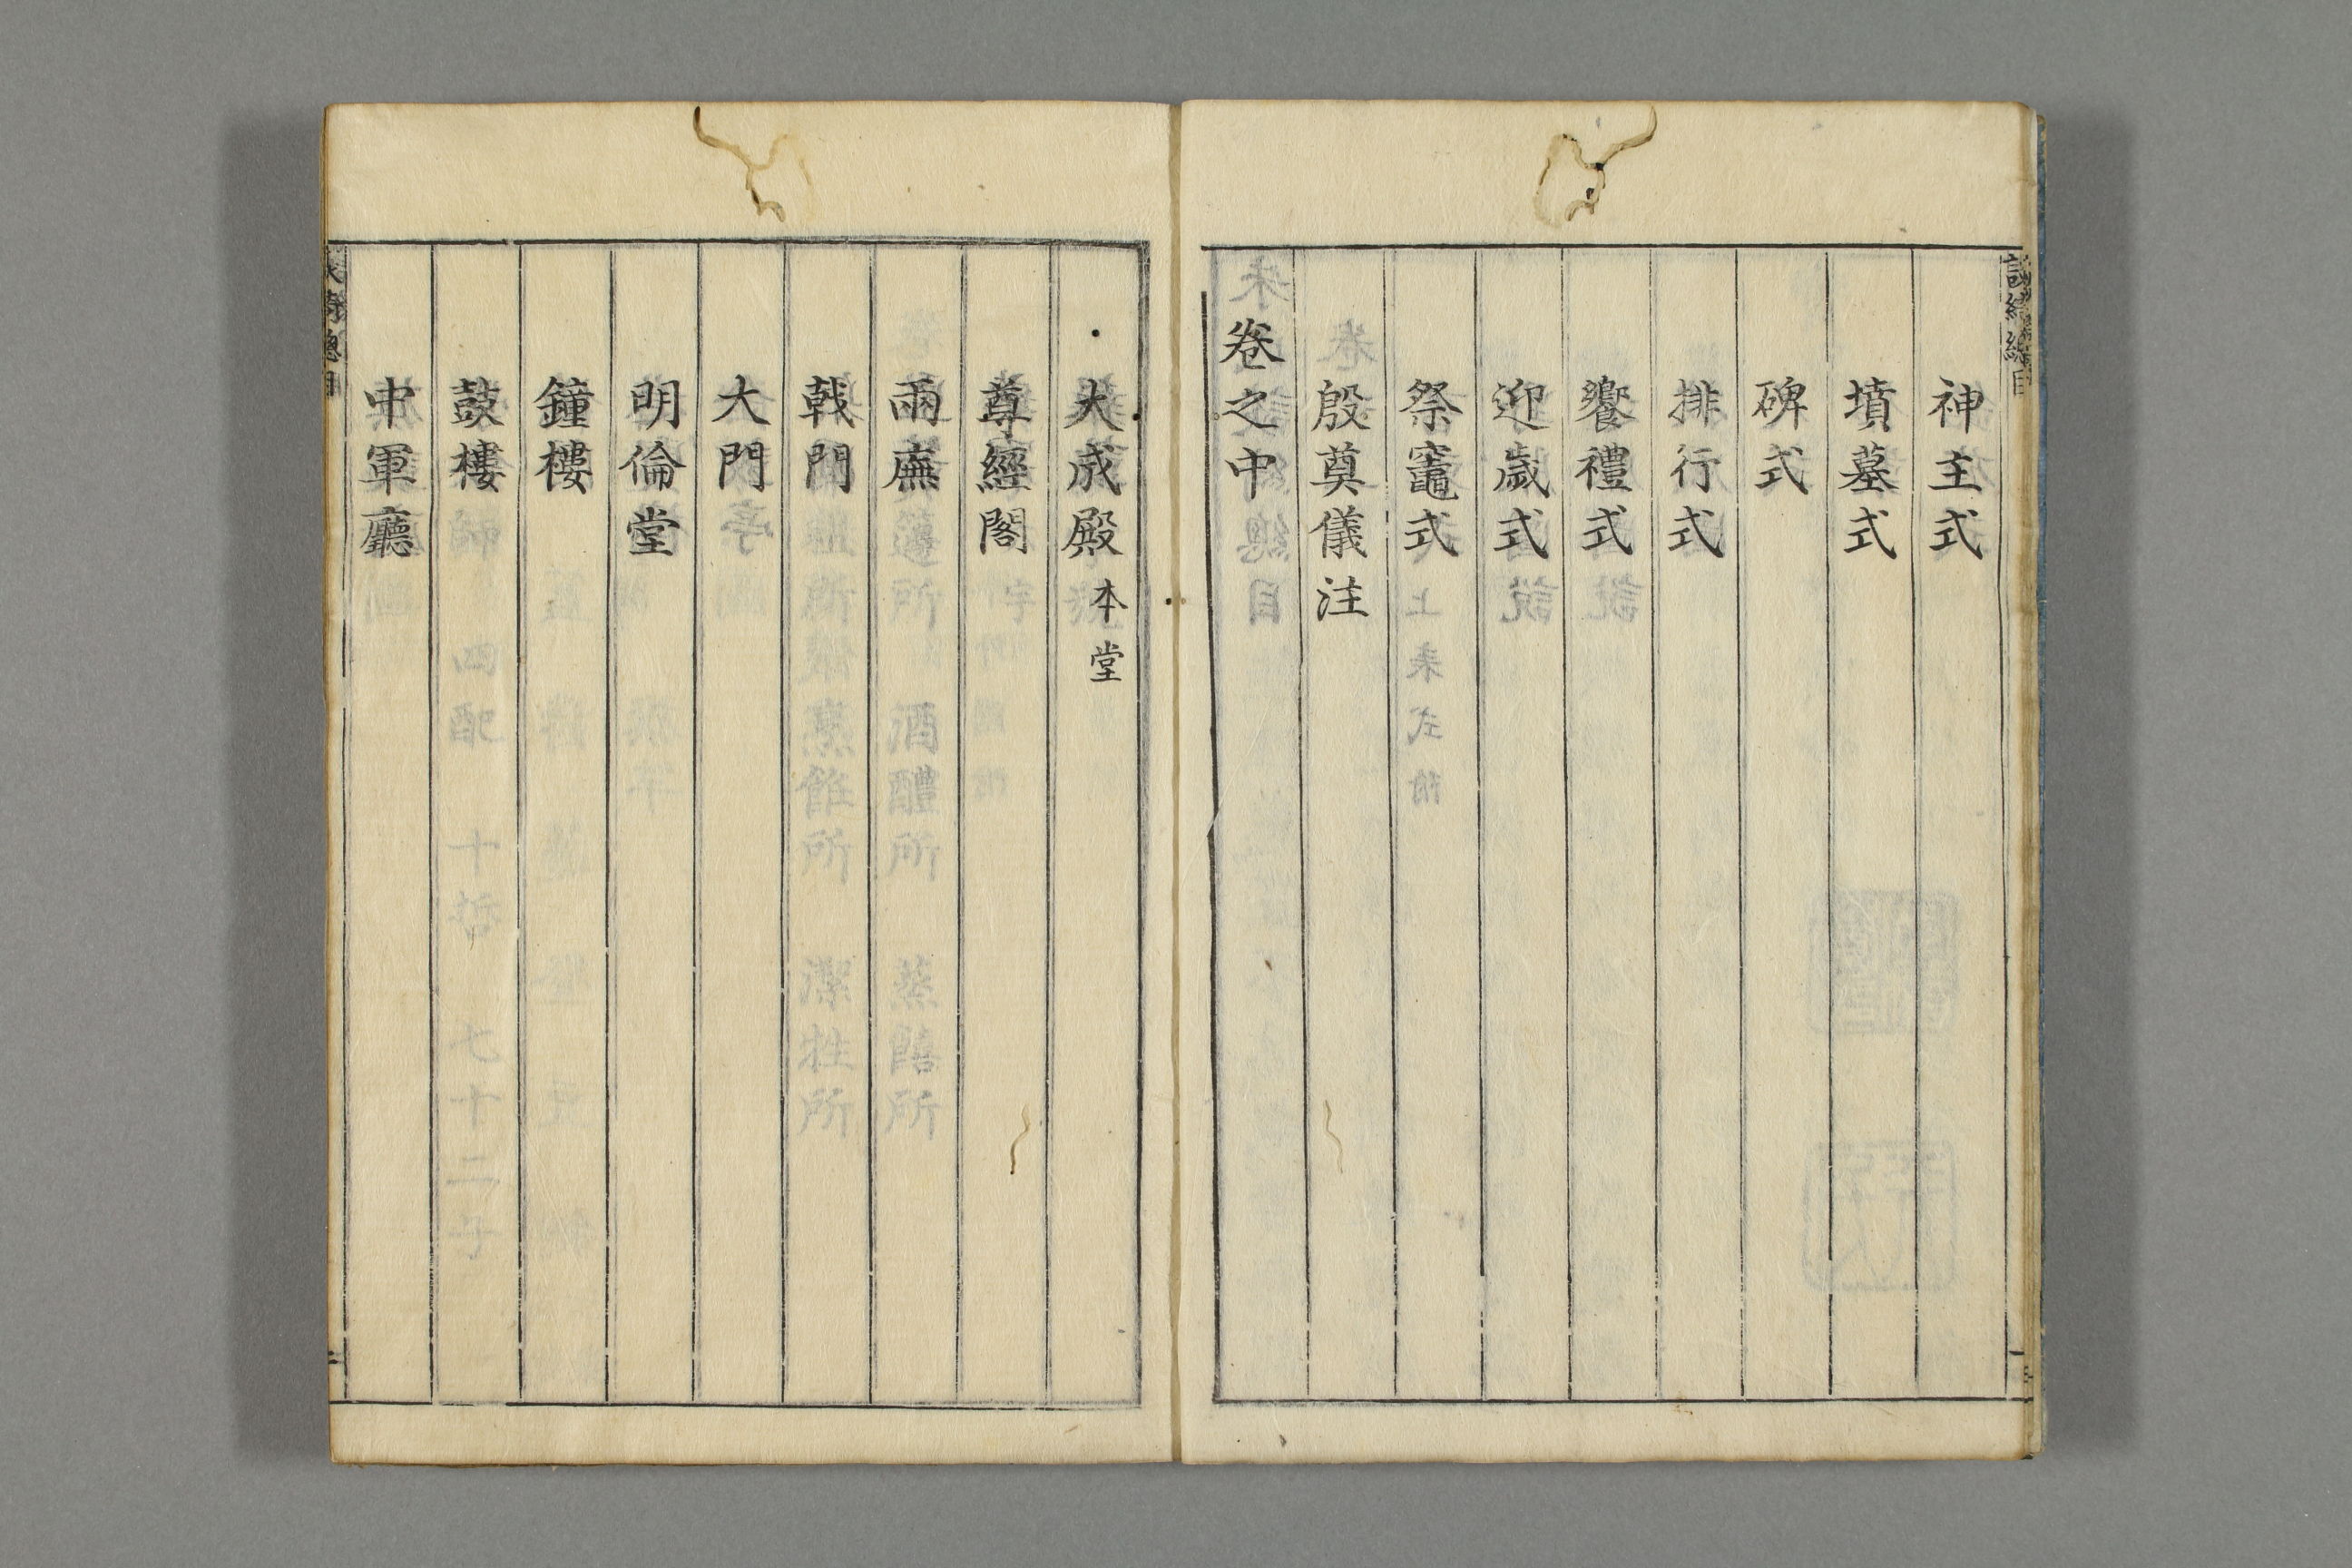 神主式
墳墓式
碑式
排行式
饗禮式
迎歲式
祭竈式
殷奠儀注
卷之中
大成殿 本堂
尊經閣
兩廡
戟門
大門
明倫堂
鐘樓
鼓樓
中軍廳